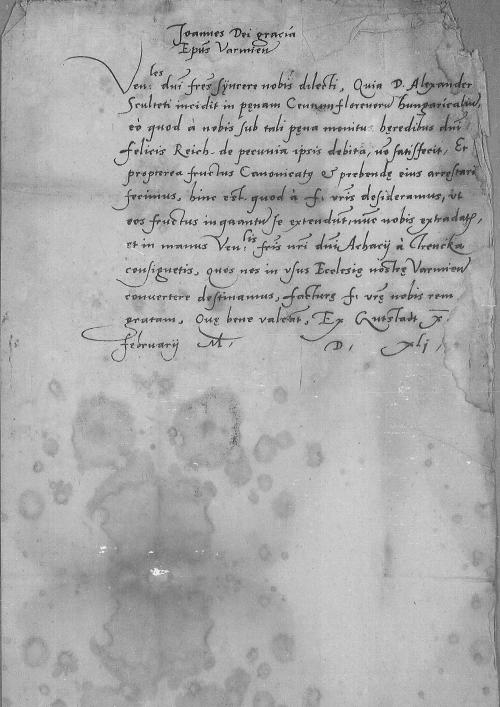 Joannes Dei gracia
Epūs Varmieñ
Ven:les dñi frēs syncere nobis dilecti, Quia D. Alexander
Sculteti incidit in pęnam Centum florenorū hungaricaliū,
eò quod à nobis sub tali pęna monitus hęredibus dñi
Felicis Reich. de pecunia ipsis debita, nō satisfecit, Et
propterea fructus Canonicatꝯ & prębendę eius arrestari
fecimus, hinc est quod à f. vr̄is desideramus, ut
eos fructus in quantū se extendūt, nūc nobis extradatꝭ,
et in manus Ven:lis fr̄is nr̄i dñi Achacij à Trencka
consignetis, quos nos in usus Ecclesię nostrę Varmieñ
convertere destinamus, facturę f. vr̄ę nobis rem
gratam, Quę bene valeāt, Ex Gutstadt X.
Februarij M. D. xlj.